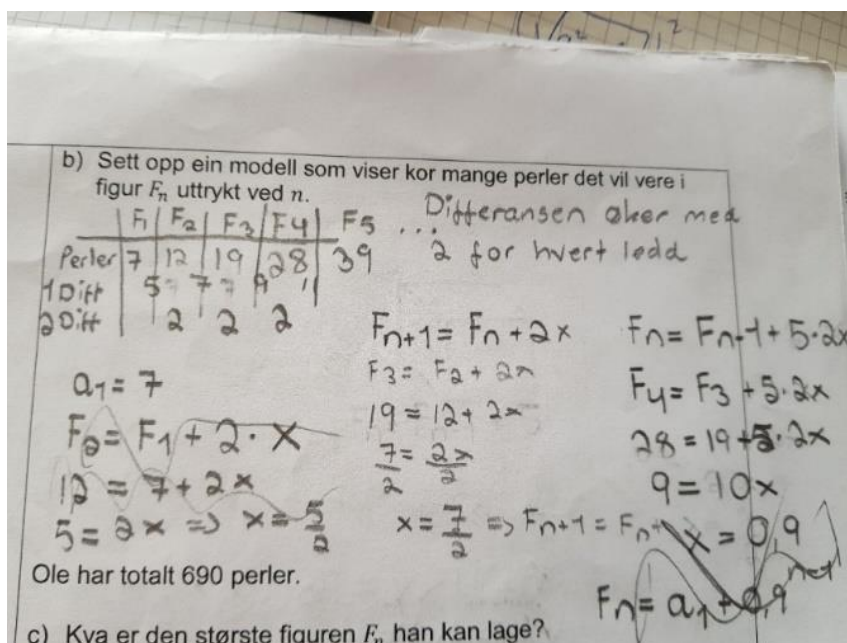 b) Sett opp ein modell som viser kor mange perler det vil vere i
figur Fₙ uttrykt ved n.
F₁ | F₂ | F₃ | F4 | F5 ...
Perler 7 | 12 | 19 | 28 | 39
1 Diff 5 7 9 11
2 Diff 2 2 2
Differansen øker med
2 for hvert ledd
a₁ = 7
F₂ = F₁ + 2 · x
12 = 7 + 2x
5 = 2x => x = 5/2
Fₙ₊₁ = Fₙ + 2x
F₃ = F₂ + 2x
19 = 12 + 2x
7/2 = 2x/2
x = 7/2 => Fₙ₊₁ = Fₙ+
Fₙ = Fₙ₋₁ + 5·2x
F₄ = F₃ + 5·2x
28 = 19 + 5·2x
9 = 10x
x = 0,9
Fₙ = a₁ + 0,9
Ole har totalt 690 perler.
c) Kva er den største figuren Fₙ han kan lage?